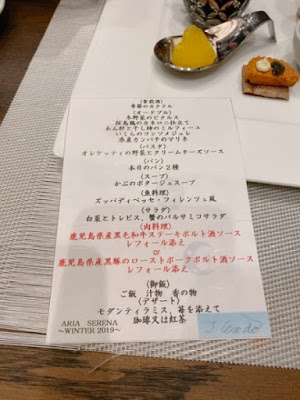 (食前酒)
季節のカクテル
(オードブル)
冬野菜のピクルス
桜島鶏のカネロニ仕立て
あん肝と干し柿のミルフィーユ
いくらのコンソメジュレ
県産カンパチのマリネ
(パスタ)
オレケッティの野菜とクリームチーズソース
(パン)
本日のパン2種
(スープ)
かぶのポタージュスープ
(魚料理)
ズッパディペッセ・フィレンツェ風
(サラダ)
白菜とトレビス、蟹のバルサミコサラダ
(肉料理)
鹿児島県産黒毛和牛ステーキポルト酒ソース
レフォール添え
or
鹿児島県産黒豚のローストポークポルト酒ソース
レフォール添え
(御飯)
ご飯 汁物 香の物
(デザート)
モダンティラミス、苺を添えて
珈琲又は紅茶
ARIA SERENA
～WINTER 2019～